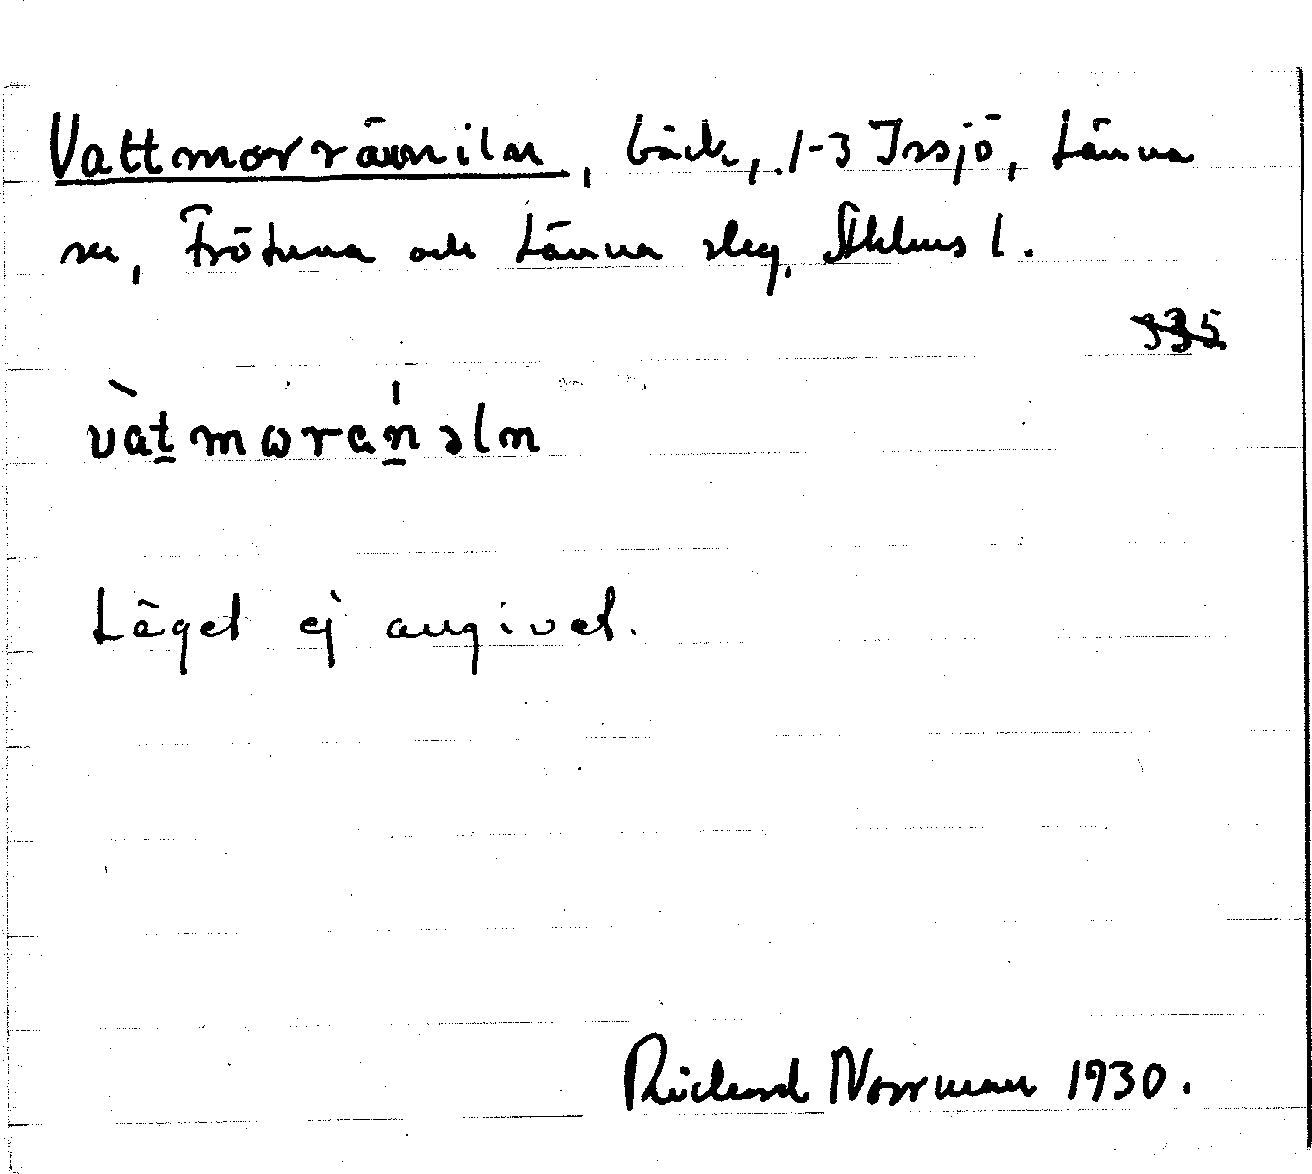 Vattmorränniln, bäck, 1-3 Issjö, Länna
sn, Frötuna och Länna skg, Sthlms l.
335
vàt̲mωrań̲əln
Läget ej angivet.
Richard Norrman 1930.